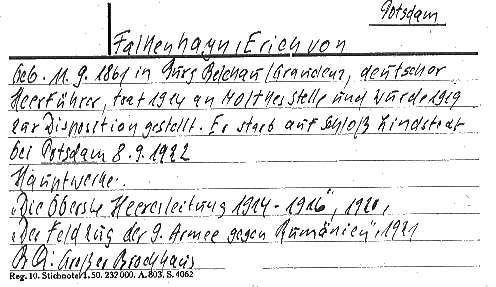 Potsdam
Falkenhayn, Erich von
Geb. 11.9.1861 in Burg Belchau/Graudenz, deutscher
Heerführer, trat 1914 an Moltkes Stelle und wurde 1919
zur Disposition gestellt. Er starb auf Schloß Lindstedt
bei Potsdam 8.9.1922
Hauptwerke:
„Die Oberste Heeresleitung 1914-1916", 1920,
„Der Feldzug der 9. Armee gegen Rumänien", 1921
Großer Brockhaus
Reg. 10. Stichnote/1. 50. 232 000. A. 803. S. 4062